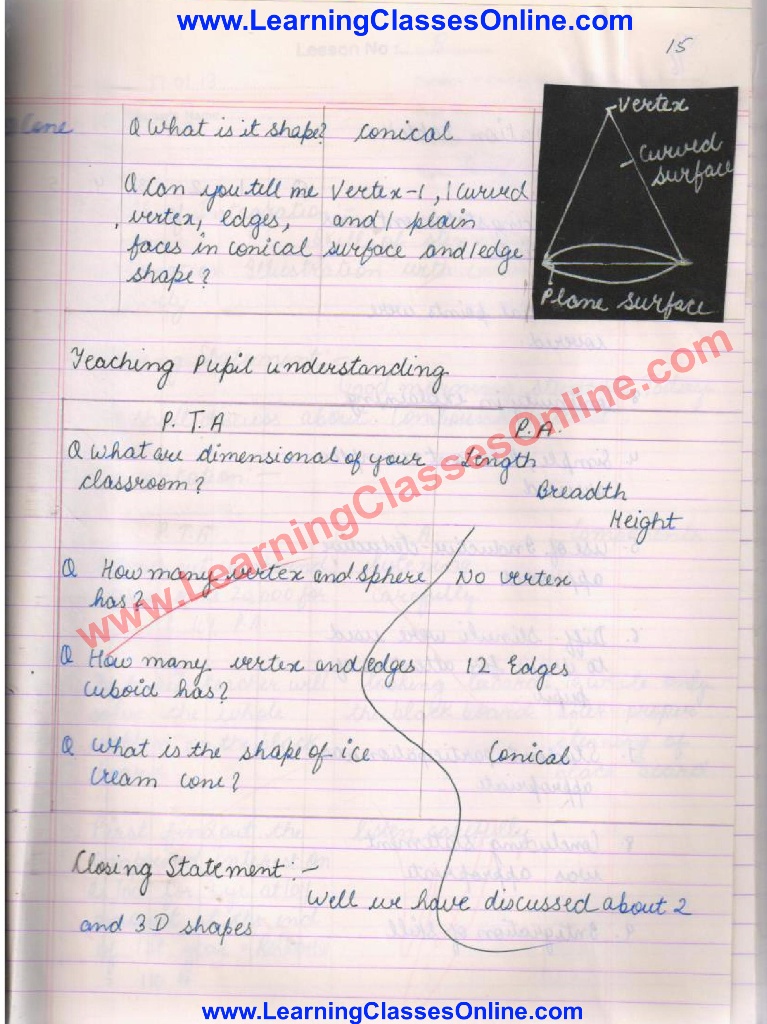 www.LearningClassesOnline.com
15
Cone
Q What is it shape? Conical
Q Can you tell me Vertex-1, 1 Curved
vertex, edges, and 1 plain
faces in conical surface and 1 edge
shape?
Vertex
Curved
surface
Plane Surface
Teaching Pupil understanding
P.T.A P.A.
Q What are dimensional of your Length
classroom? Breadth
Height
Q How many vertex and sphere No vertex
has?
Q How many vertex and edges 12 Edges
cuboid has?
Q What is the shape of ice Conical
cream cone?
Closing Statement :-
Well we have discussed about 2
and 3D shapes
www.LearningClassesOnline.com
www.LearningClassesOnline.com